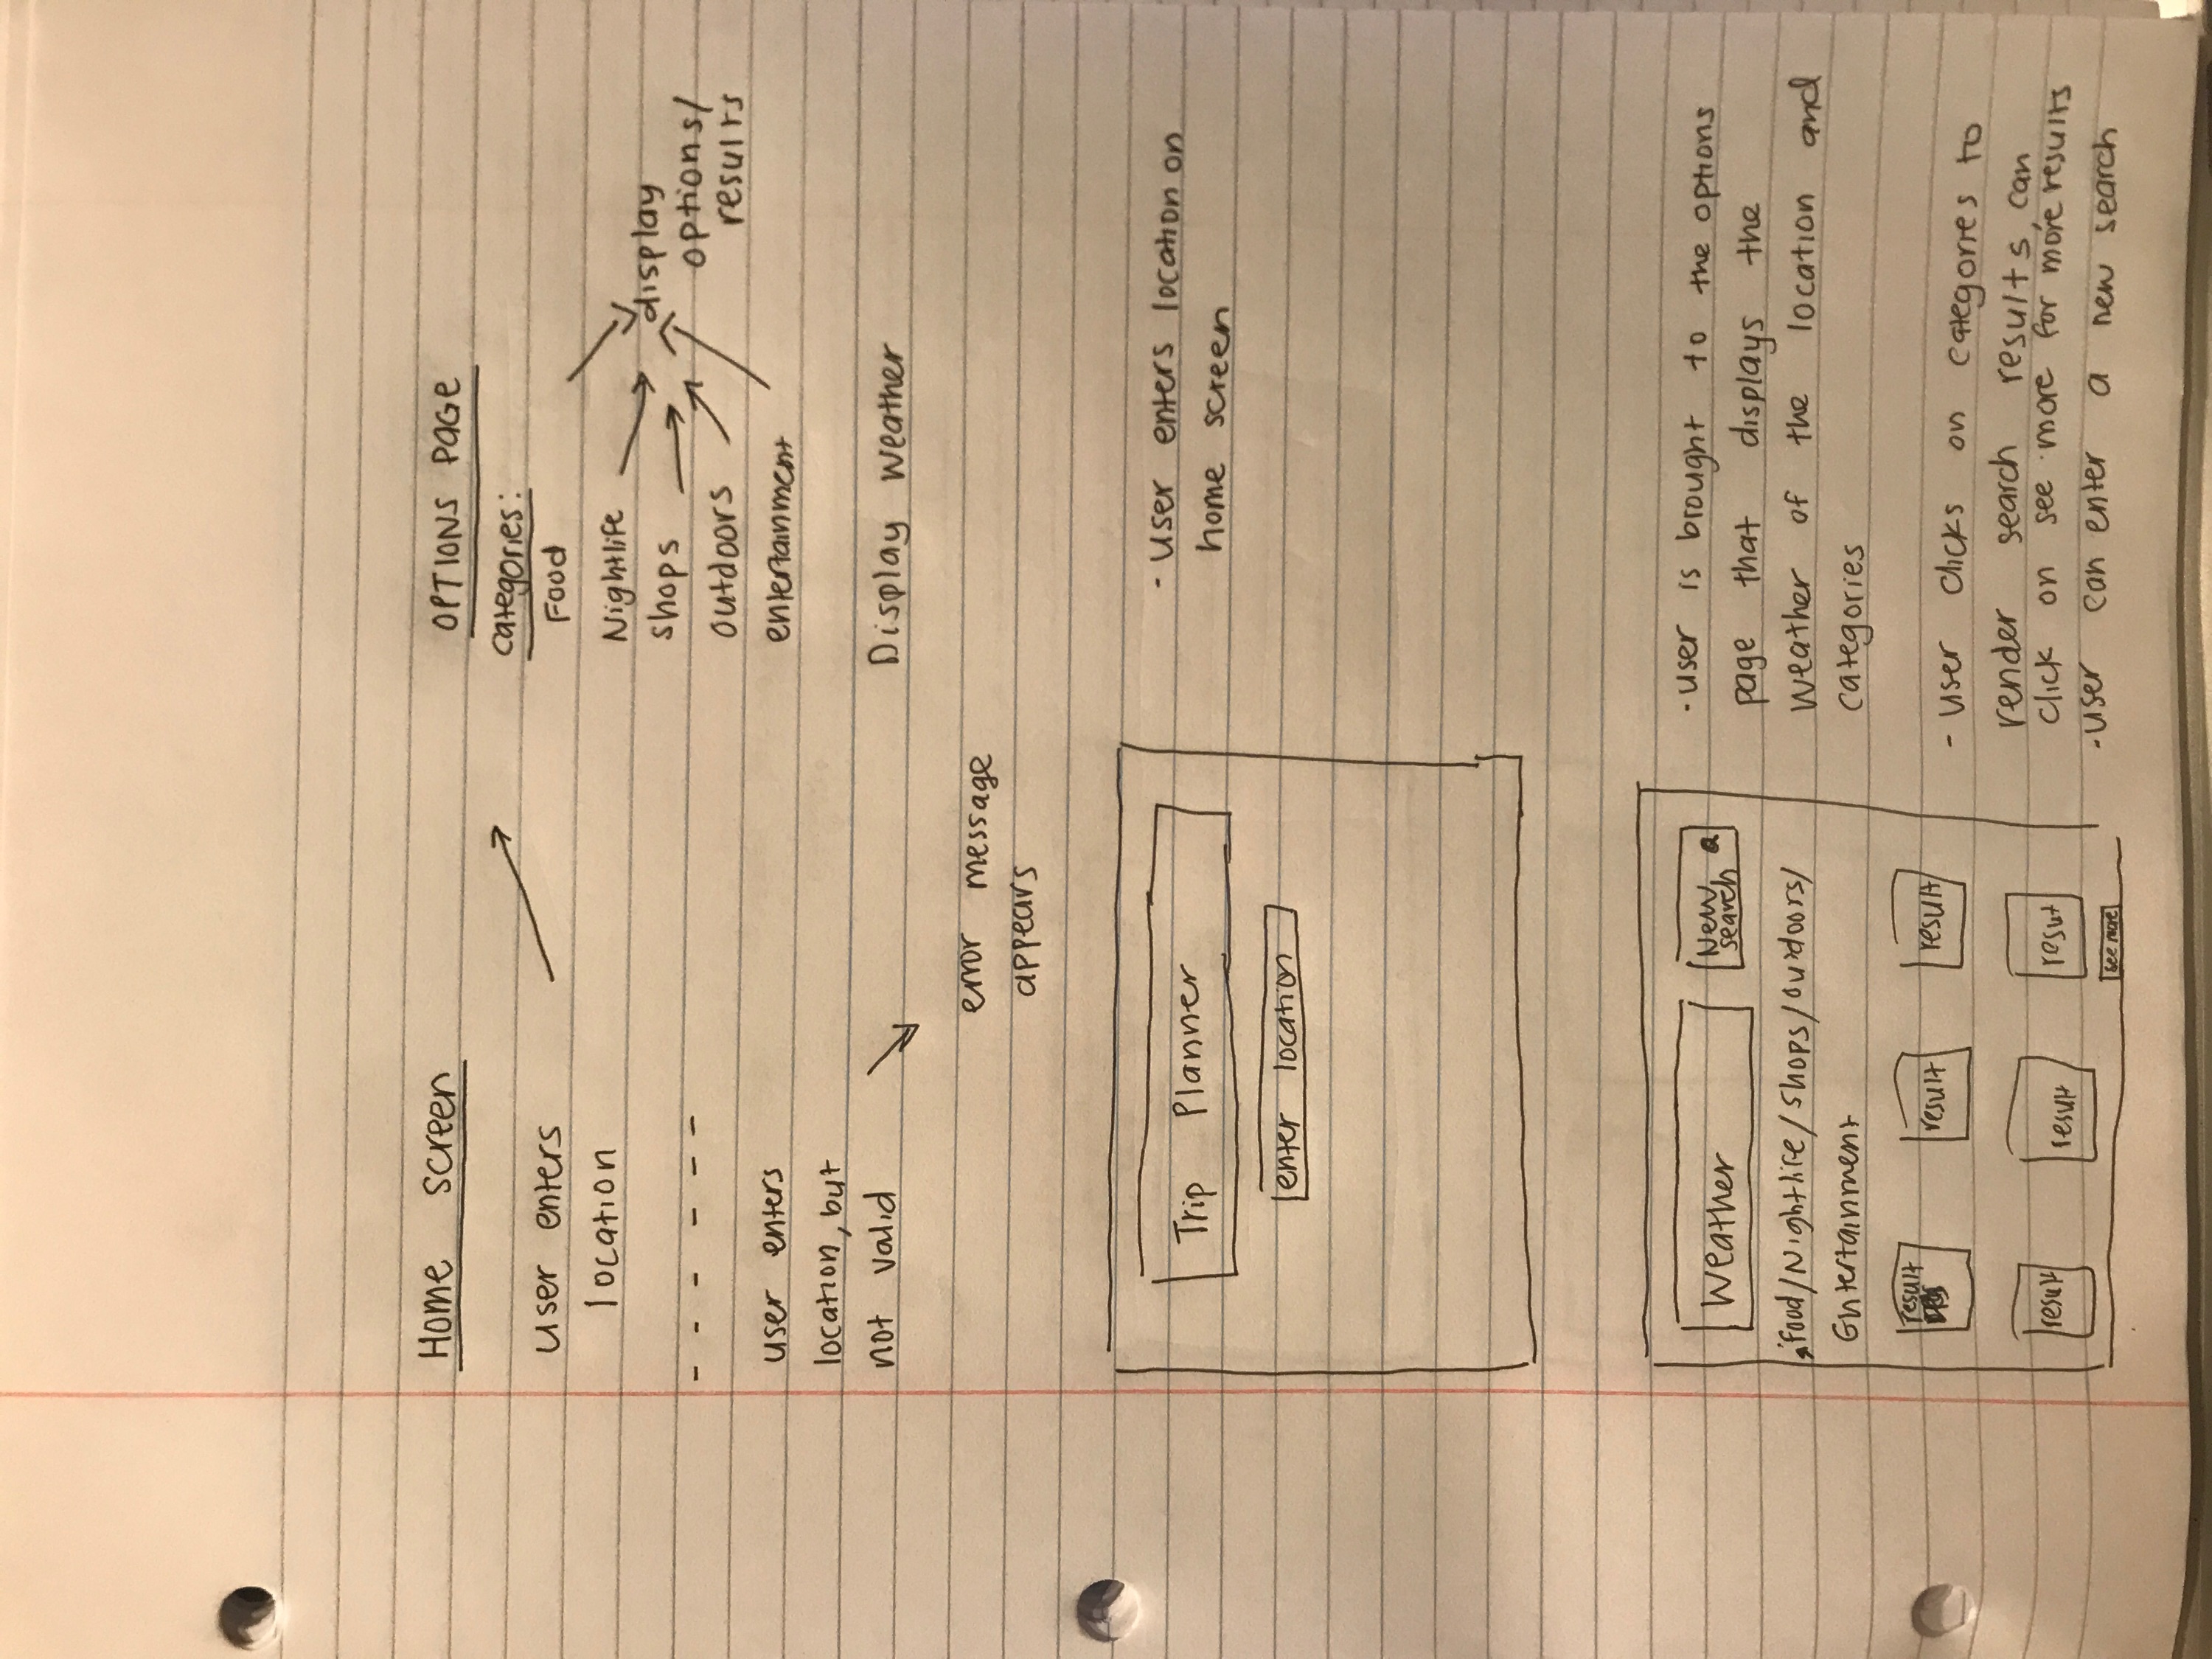 Home screen
user enters
location
- - - - - -
user enters
location, but
not valid
error message
appears
OPTIONS PAGE
categories:
Food
Nightlife
shops
outdoors
entertainment
display
options/
results
Display weather
Trip Planner
enter location
- user enters location on
home screen
Weather
New
search
food/Nightlife/shops/outdoors/
Entertainment
result
result
result
result
result
resut
see more
- user is brought to the options
page that displays the
weather of the location and
categories
- user clicks on categories to
render search results, can
click on see more for more results
- user can enter a new search